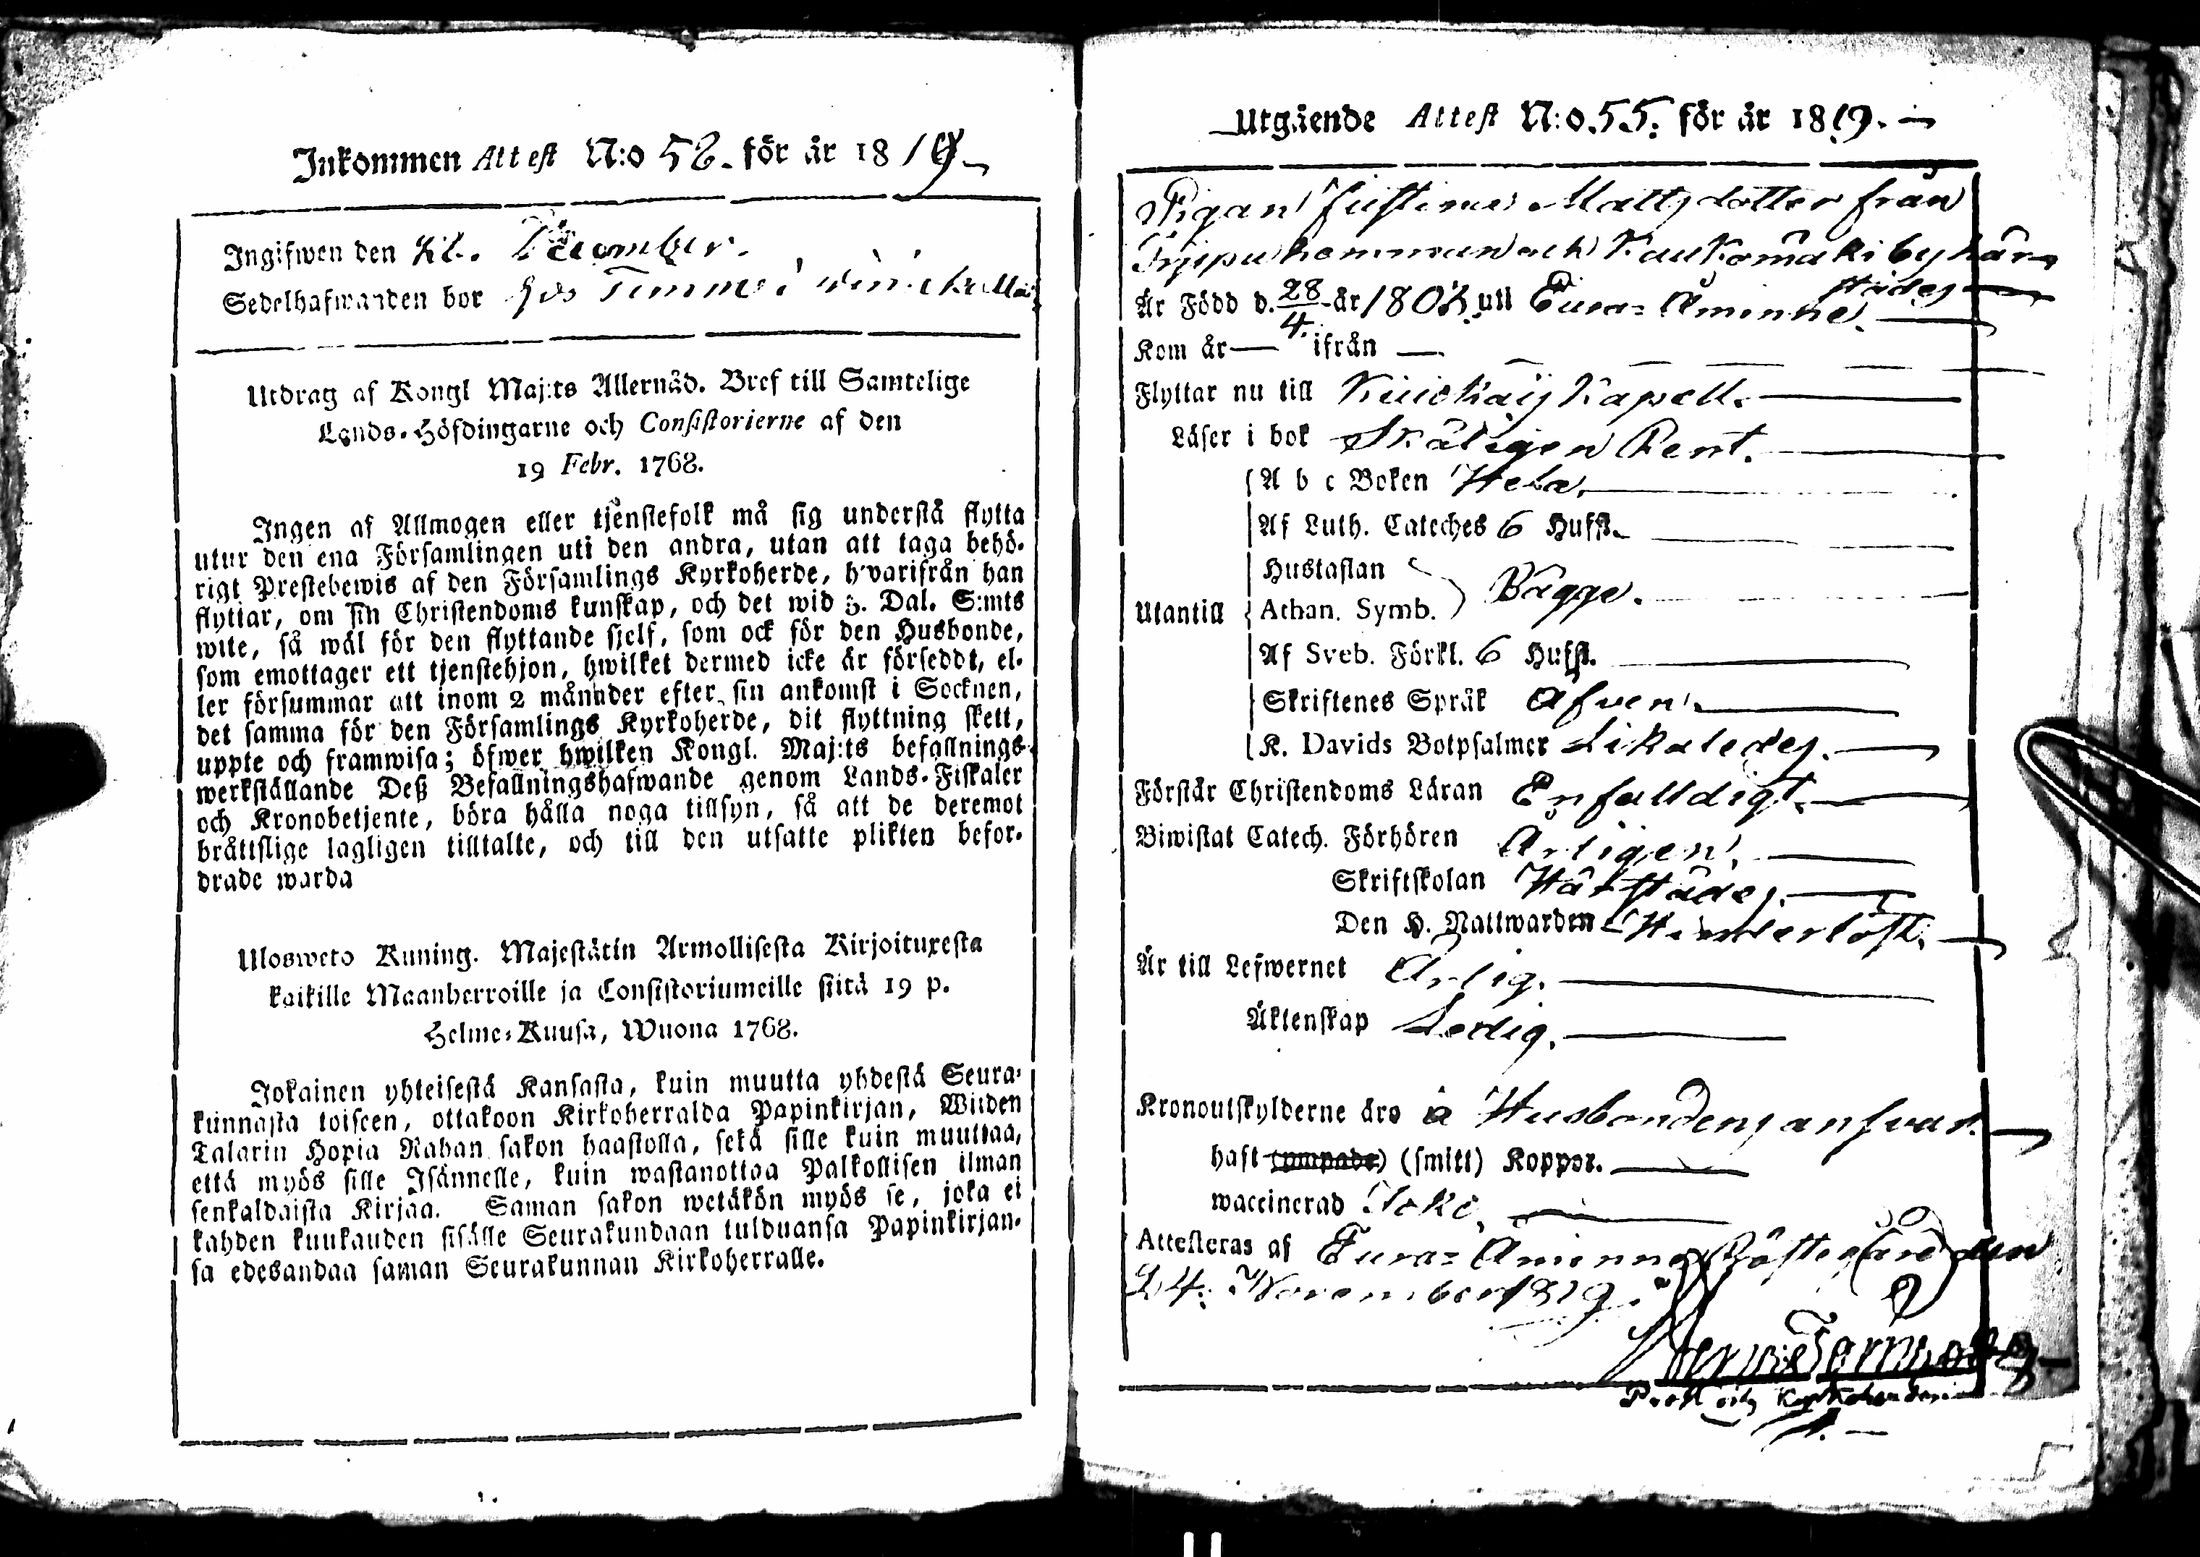 Inkommen Attest N:o 58. för år 1819
Ingifwen den December.
Sedelhafwanden bor hos i
Utdrag af Kongl Maj:ts Allernåd. Bref till Samtelige
Lands-Höfdingarne och Consistorierne af den
19 Febr. 1768.
Ingen af Allmogen eller tjenstefolk må sig understå flytta
utur den ena Församlingen uti den andra, utan att taga behö-
rigt Prestebewis af den Församlings Kyrkoherde, hwarifrån han
flyttar, om sin Christendoms kunskap, och det wid 5. Dal. S:mts
wite, så wäl för den flyttande sjelf, som ock för den Husbonde,
som emottager ett tjenstehjon, hwilket dermed icke är förseddt, el-
ler försummar att inom 2 månader efter sin ankomst i Socknen,
det samma för den Församlings Kyrkoherde, dit flyttning skett,
uppte och framwisa; öfwer hwilken Kongl. Maj:ts befallnings-
werkställande Deß Befallningshafwande genom Lands-Fiskaler
och Kronobetjente, böra hålla noga tillsyn, så att de deremot
bråttslige lagligen tilltalte, och till den utsatte plikten befor-
drade warda
Ulosweto Kuning. Majestätin Armollisesta Kirjoituxesta
kaikille Maanherroille ja Consistoriumeille siitä 19 p.
Helme-Kuusa, Wuona 1768.
Jokainen yhteisestä Kansasta, kuin muutta yhdestä Seura-
kunnasta toiseen, ottakoon Kirkoherralda Papinkirjan, Wiiden
Talarin Hopia Rahan sakon haastolla, sekä sille kuin muuttaa,
että myös sille Isännelle, kuin wastanottaa Palkollisen ilman
senkaldaista Kirjaa. Saman sakon wetäkön myös se, joka ei
kahden kuukauden sisälle Seurakundaan tulduansa Papinkirjan-
sa edesandaa saman Seurakunnan Kirkoherralle.
Utgående Attest N:o. 55. för år 1819.
Pigan Justina Mattsdotter från
och Kaukomäki by här-
städes
Är Född d. 28/4 år 180 uti Eura-Åminne.
Kom år — ifrån —
Flyttar nu till Kiukais Kapell.
Läser i bok Skäligen Rent.
A b c Boken Hela.
Af Luth. Cateches 6 Hufst.
Hustaflan
Utantill Athan. Symb. Bägge.
Af Sveb. Förkl. 6 Hufst.
Skriftenes Språk Äfven.
K. Davids Botpsalmer Likaledes.
Förstår Christendoms Läran Enfalldigt.
Biwistat Catech. Förhören Årligen.
Skriftskolan Härstädes.
Den H. Nattwarden Hinderlöst.
Är till Lefwernet Ärlig.
Äktenskap Ledig.
Kronoutskylderne äro å Husbondens ansvar.
haft (ympade) (smitt) Koppor.
waccinerad Icke.
Attesteras af Eura-Åminne Prästegård den
24. November 1819.
Prost och Kyrkoherde